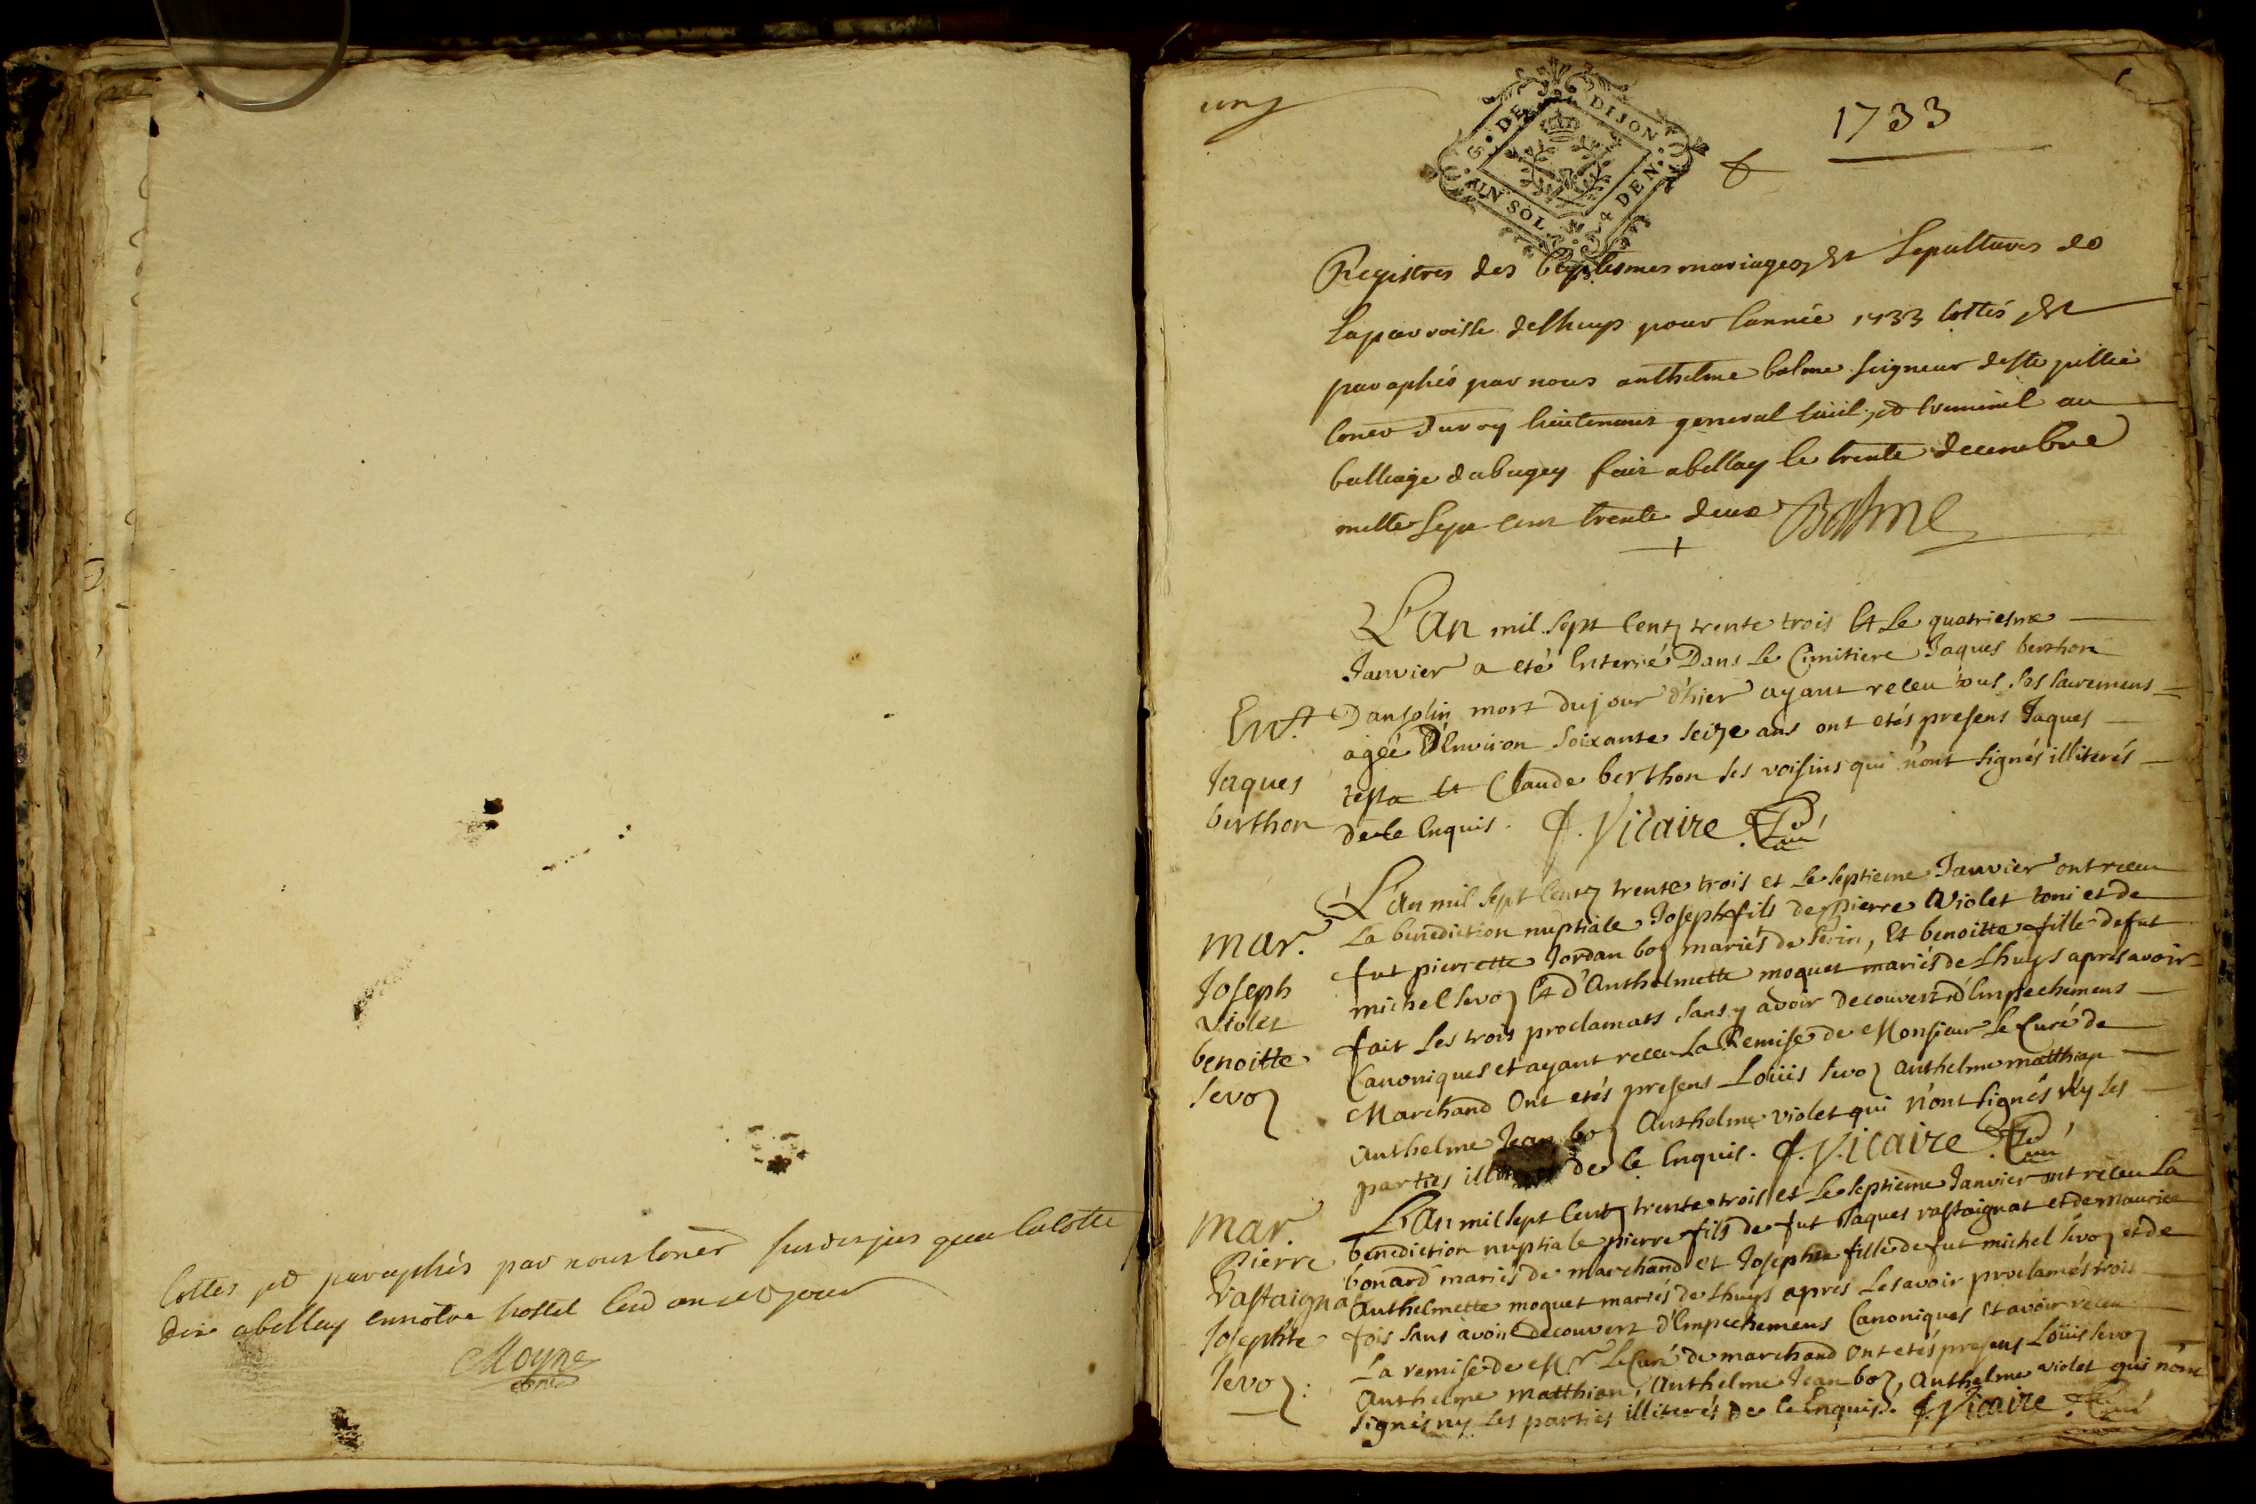 Cottés et paraphés par nous
dix abellay en nôtre hostel
Moyne
ung
G. DE DIJON
4 DEN.
UN SOL
1733
Registres des baptesmes mariages et sepultures de
la parroisse de Lhuys pour l'année 1733 cottés et
paraphés par nous anthelme balme seigneur de ste jullie
lieutenant general civil et criminel au
balliage du bugey fait a bellay le trente decembre
mille sept cent trente deux Balme
L'An mil sept centz trente trois Et Le quatriesme
Janvier a eté Enterré Dans Le Cimitiere Jaques berthon
Dansolin mort du jour d'hier ayant receu tous ses sacremens
Ent.t
agéé D'Environ soixante seize ans ont etés presens Jaques
Jaques
testa Et Claude berthon ses voisins qui n'ont signés illiterés
berthon
de ce Enquis. J. Vicaire Curé
L'an mil sept centz trente trois et Le septieme Janvier ont receu
mar.
La benediction nuptiale Joseph fils de pierre Violet toni et de
fut pierrette Jordan boz mariés de serin, Et benoitte fille de fut
Joseph
michel sevoz Et d'Anthelmette moquet mariés de Lhuys aprés avoir
violet
fait Les trois proclamats sans y avoir decouvert d'Empechemens
benoitte
Canoniques et ayant receu La Remise de Monsieur Le Curé de
sevoz
Marchand Ont etés presens Loüis sevoz anthelme matthian
Anthelme Jean boz Anthelme violet qui n'ont signés Ny Les
parties de ce Enquis. J. Vicaire Curé
mar.
L'An mil sept centz trente trois et Le septieme Janvier ont receu La
Pierre
benediction nuptiale pierre fils de fut Jaques rastaignat et de maurice
Rastaigna
bonard mariés de marchand et Josephte fille de fut michel sevoz et de
Anthelmette moquet mariés de Lhuys apres Les avoir proclamés trois
Josephte
fois sans avoir decouvert d'Empechemens Canoniques et avoir receu
sevoz:
La remise de Mr. Le Curé de marchand Ont etés presens Loüis sevoz
Anthelme matthian, Anthelme Jean boz, Anthelme violet qui n'ont
signés ny Les parties illiterés de ce Enquis. J. Vicaire Curé